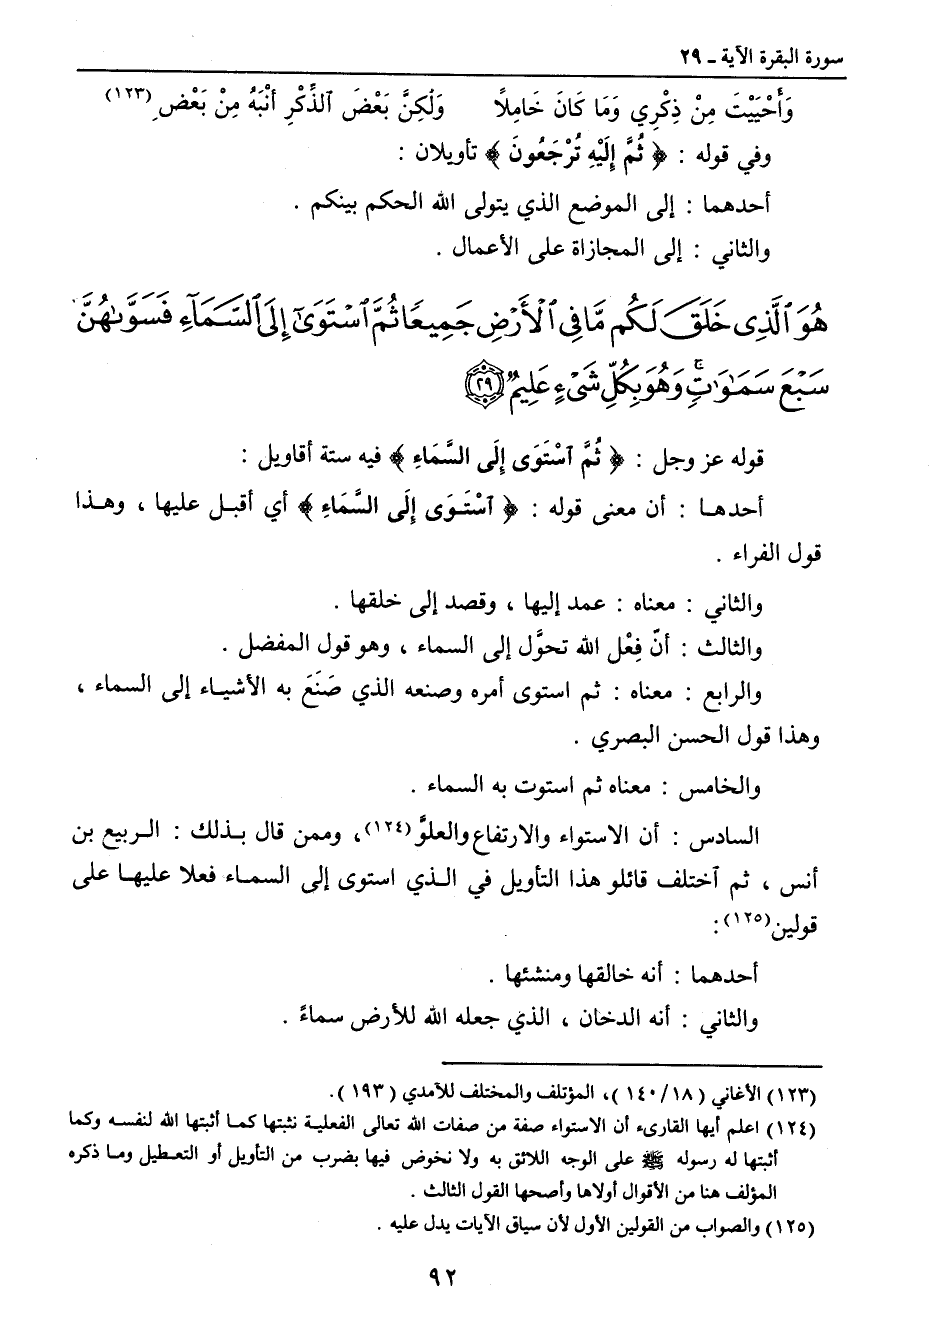 سورة البقرة الآية ـ ٢٩
وَأَحْيَيْتَ مِنْ ذِكْرِي وَمَا كَانَ خَامِلًا وَلٰكِنَّ بَعْضَ الذِّكْرِ أَنْبَهُ مِنْ بَعْضِ (١٢٣)
وفي قوله : ﴿ ثُمَّ إِلَيْهِ تُرْجَعُونَ ﴾ تأويلان :
أحدهما : إلى الموضع الذي يتولى الله الحكم بينكم .
والثاني : إلى المجازاة على الأعمال .
هُوَ ٱلَّذِى خَلَقَ لَكُم مَّا فِى ٱلْأَرْضِ جَمِيعًا ثُمَّ ٱسْتَوَىٰٓ إِلَى ٱلسَّمَآءِ فَسَوَّىٰهُنَّ
سَبْعَ سَمَٰوَٰتٍۚ وَهُوَ بِكُلِّ شَىْءٍ عَلِيمٌ ٢٩
قوله عز وجل : ﴿ ثُمَّ ٱسْتَوَى إِلَى السَّمَاءِ ﴾ فيه ستة أقاويل :
أحدهـا : أن معنى قوله : ﴿ ٱسْتَـوَى إِلَى السَّمَاءِ ﴾ أي أقبـل عليها ، وهـذا
قول الفراء .
والثاني : معناه : عمد إليها ، وقصد إلى خلقها .
والثالث : أنّ فِعْل الله تحوَّل إلى السماء ، وهو قول المفضل .
والرابع : معناه : ثم استوى أمره وصنعه الذي صَنَعَ به الأشيـاء إلى السماء ،
وهذا قول الحسن البصري .
والخامس : معناه ثم استوت به السماء .
السادس : أن الاستواء والارتفاع والعلوَّ (١٢٤)، وممن قال بـذلك : الـربيع بن
أنس ، ثم ٱختلف قائلو هذا التأويل في الـذي استوى إلى السمـاء فعلا عليهـا على
قولين (١٢٥):
أحدهما : أنه خالقها ومنشئها .
والثاني : أنه الدخان ، الذي جعله الله للأرض سماءً .
(١٢٣) الأغاني ( ١٤٠/١٨ )، المؤتلف والمختلف للآمدي ( ١٩٣ ).
(١٢٤) اعلم أيها القارىء أن الاستواء صفة من صفات الله تعالى الفعلية نثبتها كمـا أثبتها الله لنفسـه وكما
أثبتها له رسوله ﷺ على الوجه اللائق به ولا نخوض فيها بضرب من التأويل أو التعـطيل ومـا ذكره
المؤلف هنا من الأقوال أولاها وأصحها القول الثالث .
(١٢٥) والصواب من القولين الأول لأن سياق الآيات يدل عليه .
٩٢